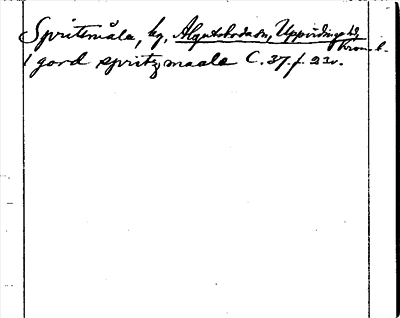 Spritsmåla, by, Algutsboda sn, Uppvidinge hd,
Kron. l.
1 gord spritz maala C. 37. f. 23v.